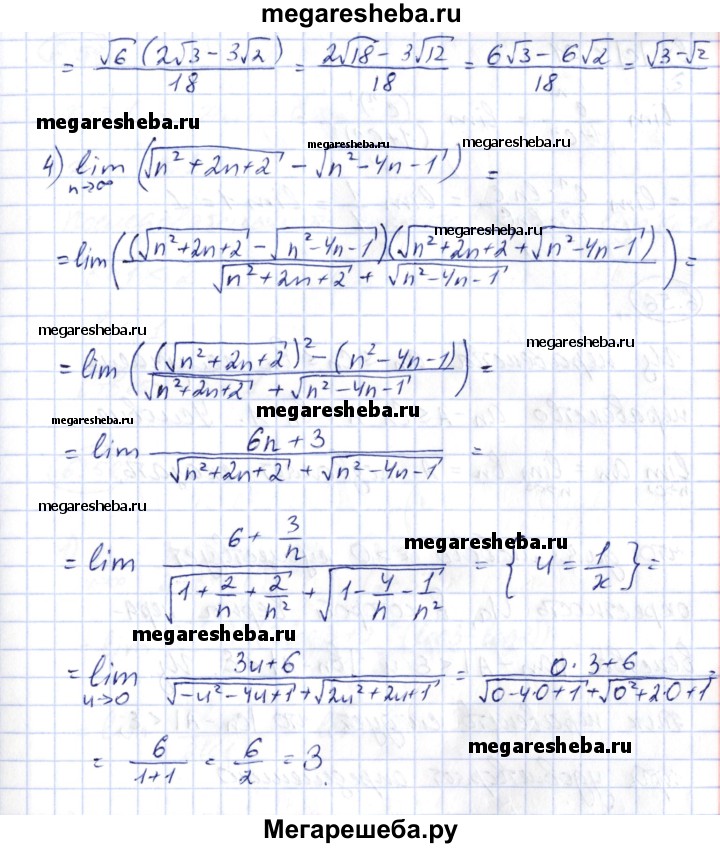 megaresheba.ru
= √6 (2√3 − 3√2) / 18 = (2√18 − 3√12) / 18 = (6√3 − 6√2) / 18 = √3 − √2
megaresheba.ru
4) lim n→∞ (√(n² + 2n + 2) − √(n² − 4n − 1)) =
megaresheba.ru
megaresheba.ru
megaresheba.ru
= lim ( (√(n² + 2n + 2) − √(n² − 4n − 1)) (√(n² + 2n + 2) + √(n² − 4n − 1)) / (√(n² + 2n + 2) + √(n² − 4n − 1)) ) =
megaresheba.ru
megaresheba.ru
= lim ( ((√(n² + 2n + 2))² − (n² − 4n − 1)) / (√(n² + 2n + 2) + √(n² − 4n − 1)) ) =
megaresheba.ru
megaresheba.ru
= lim (6n + 3) / (√(n² + 2n + 2) + √(n² − 4n − 1)) =
megaresheba.ru
megaresheba.ru
= lim (6 + 3/n) / (√(1 + 2/n + 2/n²) + √(1 − 4/n − 1/n²)) = { u = 1/x } =
megaresheba.ru
= lim u→0 (3u + 6) / (√(−u² − 4u + 1) + √(2u² + 2u + 1)) = (0 · 3 + 6) / (√(0 − 4·0 + 1) + √(0² + 2·0 + 1)) =
megaresheba.ru
= 6 / (1 + 1) = 6/2 = 3.
Мегарешеба.ру